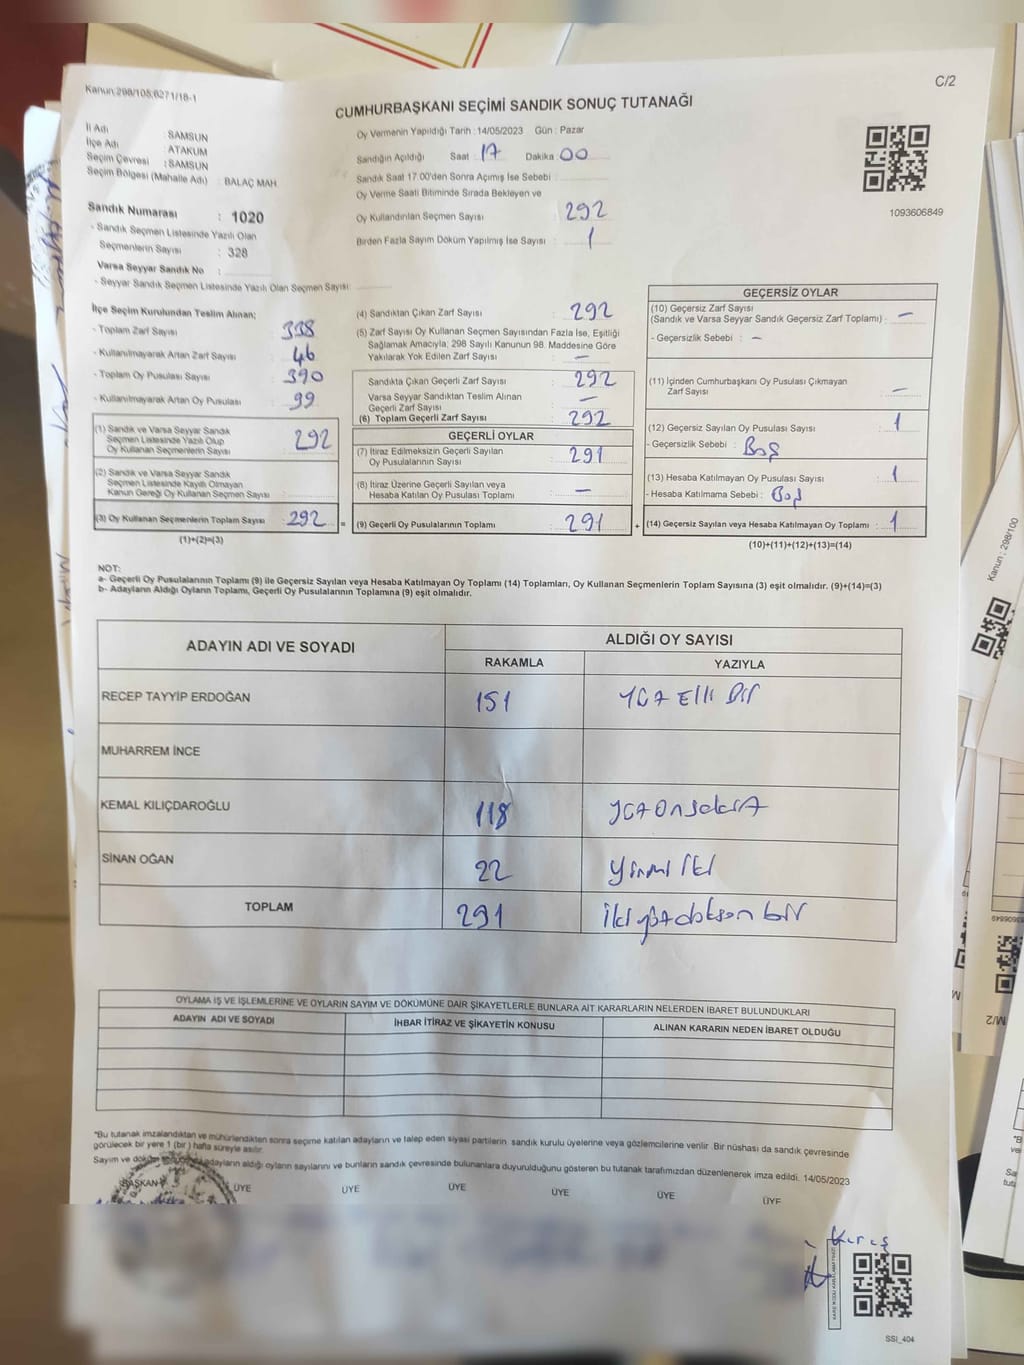 Kanun:298/105;6271/18-1
C/2
CUMHURBAŞKANI SEÇİMİ SANDIK SONUÇ TUTANAĞI
İl Adı : SAMSUN
İlçe Adı : ATAKUM
Seçim Çevresi : SAMSUN
Seçim Bölgesi (Mahalle Adı) : BALAÇ MAH.
Sandık Numarası : 1020
- Sandık Seçmen Listesinde Yazılı Olan
Seçmenlerin Sayısı : 328
Varsa Seyyar Sandık No :
- Seyyar Sandık Seçmen Listesinde Yazılı Olan Seçmen Sayısı:
Oy Vermenin Yapıldığı Tarih : 14/05/2023 Gün : Pazar
Sandığın Açıldığı Saat : 17 Dakika : 00
Sandık Saat 17:00'den Sonra Açımış İse Sebebi :
Oy Verme Saati Bitiminde Sırada Bekleyen ve
Oy Kullandırılan Seçmen Sayısı : 292
Birden Fazla Sayım Döküm Yapılmış İse Sayısı : 1
1093606849
İlçe Seçim Kurulundan Teslim Alınan;
- Toplam Zarf Sayısı : 338
- Kullanılmayarak Artan Zarf Sayısı : 46
- Toplam Oy Pusulası Sayısı : 390
- Kullanılmayarak Artan Oy Pusulası : 99
(1) Sandık ve Varsa Seyyar Sandık
Seçmen Listesinde Yazılı Olup
Oy Kullanan Seçmenlerin Sayısı : 292
(2) Sandık ve Varsa Seyyar Sandık
Seçmen Listesinde Kayıtlı Olmayan
Kanun Gereği Oy Kullanan Seçmen Sayısı :
(3) Oy Kullanan Seçmenlerin Toplam Sayısı : 292 =
(1)+(2)=(3)
(4) Sandıktan Çıkan Zarf Sayısı : 292
(5) Zarf Sayısı Oy Kullanan Seçmen Sayısından Fazla İse, Eşitliği
Sağlamak Amacıyla; 298 Sayılı Kanunun 98. Maddesine Göre
Yakılarak Yok Edilen Zarf Sayısı : —
Sandıkta Çıkan Geçerli Zarf Sayısı : 292
Varsa Seyyar Sandıktan Teslim Alınan
Geçerli Zarf Sayısı : —
(6) Toplam Geçerli Zarf Sayısı : 292
GEÇERLİ OYLAR
(7) İtiraz Edilmeksizin Geçerli Sayılan
Oy Pusulalarının Sayısı : 291
(8) İtiraz Üzerine Geçerli Sayılan veya
Hesaba Katılan Oy Pusulası Toplamı : —
(9) Geçerli Oy Pusulalarının Toplamı : 291 +
GEÇERSİZ OYLAR
(10) Geçersiz Zarf Sayısı
(Sandık ve Varsa Seyyar Sandık Geçersiz Zarf Toplamı) : —
- Geçersizlik Sebebi : —
(11) İçinden Cumhurbaşkanı Oy Pusulası Çıkmayan
Zarf Sayısı : —
(12) Geçersiz Sayılan Oy Pusulası Sayısı : 1
- Geçersizlik Sebebi : Boş
(13) Hesaba Katılmayan Oy Pusulası Sayısı : 1
- Hesaba Katılmama Sebebi : Boş
(14) Geçersiz Sayılan veya Hesaba Katılmayan Oy Toplamı : 1
(10)+(11)+(12)+(13)=(14)
NOT:
a- Geçerli Oy Pusulalarının Toplamı (9) ile Geçersiz Sayılan veya Hesaba Katılmayan Oy Toplamı (14) Toplamları, Oy Kullanan Seçmenlerin Toplam Sayısına (3) eşit olmalıdır. (9)+(14)=(3)
b- Adayların Aldığı Oyların Toplamı, Geçerli Oy Pusulalarının Toplamına (9) eşit olmalıdır.
ADAYIN ADI VE SOYADI ALDIĞI OY SAYISI
RAKAMLA YAZIYLA
RECEP TAYYİP ERDOĞAN 151 Yüz Elli Bir
MUHARREM İNCE
KEMAL KILIÇDAROĞLU 118 Yüz On sekiz
SİNAN OĞAN 22 Yirmi İki
TOPLAM 291 İki yüz doksan bir
OYLAMA İŞ VE İŞLEMLERİNE VE OYLARIN SAYIM VE DÖKÜMÜNE DAİR ŞİKAYETLERLE BUNLARA AİT KARARLARIN NELERDEN İBARET BULUNDUKLARI
ADAYIN ADI VE SOYADI İHBAR İTİRAZ VE ŞİKAYETİN KONUSU ALINAN KARARIN NEDEN İBARET OLDUĞU
*Bu tutanak imzalandıktan ve mühürlendikten sonra seçime katılan adayların ve talep eden siyasi partilerin sandık kurulu üyelerine veya gözlemcilerine verilir. Bir nüshası da sandık çevresinde
görülecek bir yere 1 (bir) hafta süreyle asılır.
Sayım ve döküm adayların aldığı oyların sayılarını ve bunların sandık çevresinde bulunanlara duyurulduğunu gösteren bu tutanak tarafımızdan düzenlenerek imza edildi. 14/05/2023
BAŞKAN ÜYE ÜYE ÜYE ÜYE ÜYE ÜYE
SSI_404
Kanun : 298/100
M/2